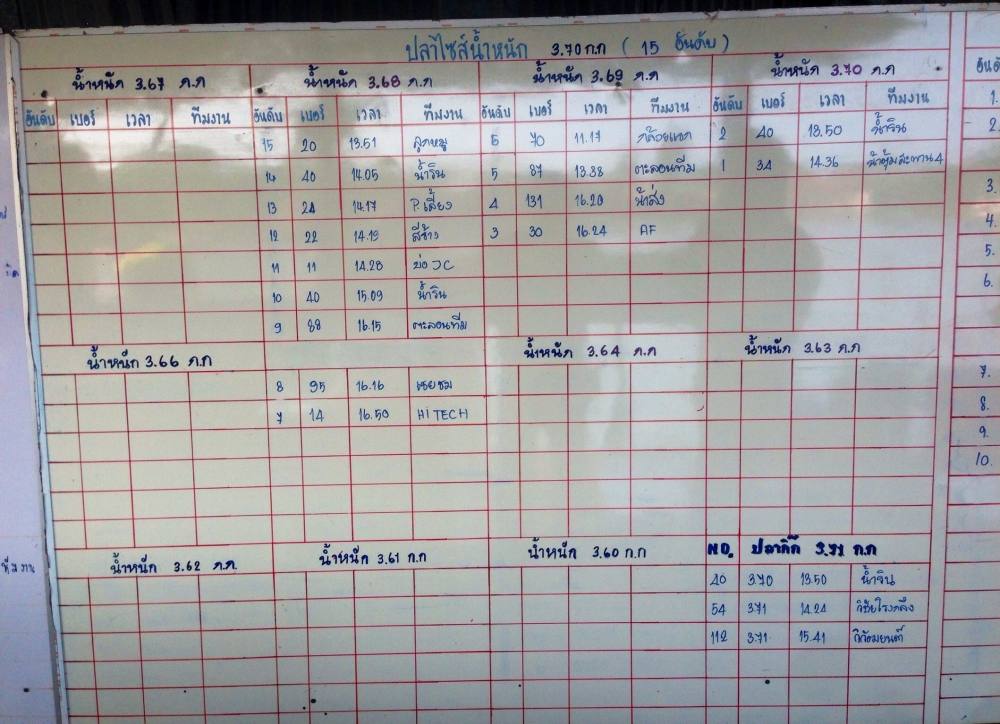 ปลาไซส์น้ำหนัก 3.70 ก.ก ( 15 อันดับ )
น้ำหนัก 3.67 ก.ก น้ำหนัก 3.68 ก.ก น้ำหนัก 3.69 ก.ก น้ำหนัก 3.70 ก.ก
อันดับ เบอร์ เวลา ทีมงาน อันดับ เบอร์ เวลา ทีมงาน อันดับ เบอร์ เวลา ทีมงาน อันดับ เบอร์ เวลา ทีมงาน
15 20 13.51 ลูกหมู 6 70 11.17 กล้วยแขก 2 40 13.50 น้ำริน
14 40 14.05 น้ำริน 5 87 13.38 ตะลอนทีม 1 34 14.36
13 24 14.17 P.เลี้ยง 4 131 16.20 น้าส่ง
12 22 14.19 สีช้าง 3 30 16.24 AF
11 11 14.28 บ่อ JC
10 40 15.09 น้ำริน
9 88 16.15 ตะลอนทีม
น้ำหนัก 3.66 ก.ก น้ำหนัก 3.64 ก.ก น้ำหนัก 3.63 ก.ก
8 95 16.16 เชยชม
7 14 16.50 HI TECH
น้ำหนัก 3.62 ก.ก. น้ำหนัก 3.61 ก.ก น้ำหนัก 3.60 ก.ก NO. 3.71 ก.ก
40 3.70 13.50
54 3.71 14.24
112 3.71 15.41
อันดับ
1.
2.
3.
4.
5.
6.
7.
8.
9.
10.
ทีมงาน